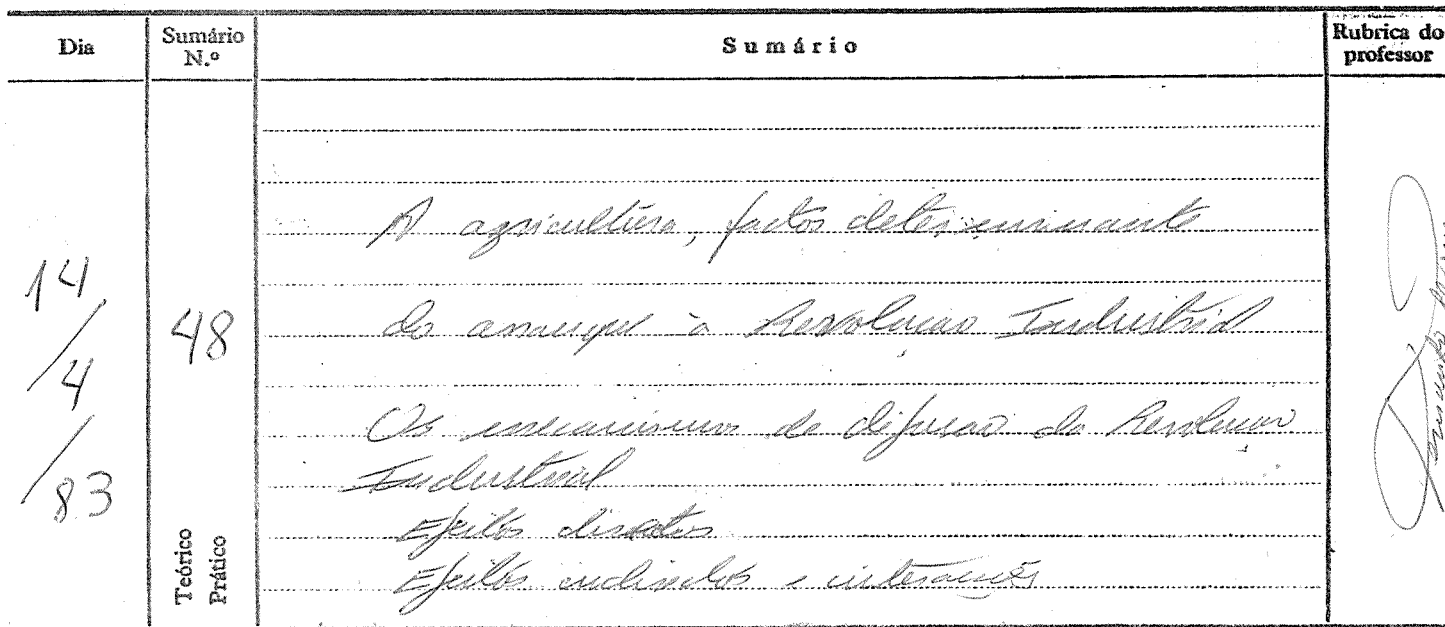 Dia
Sumário N.º
Sumário
Rubrica do professor
14/4/83
48
Teórico
Prático
A agricultura, factor determinante
do arranque à Revolução Industrial
Os mecanismos de difusão da Revolução
Industrial
Efeitos directos
Efeitos indirectos e interacções